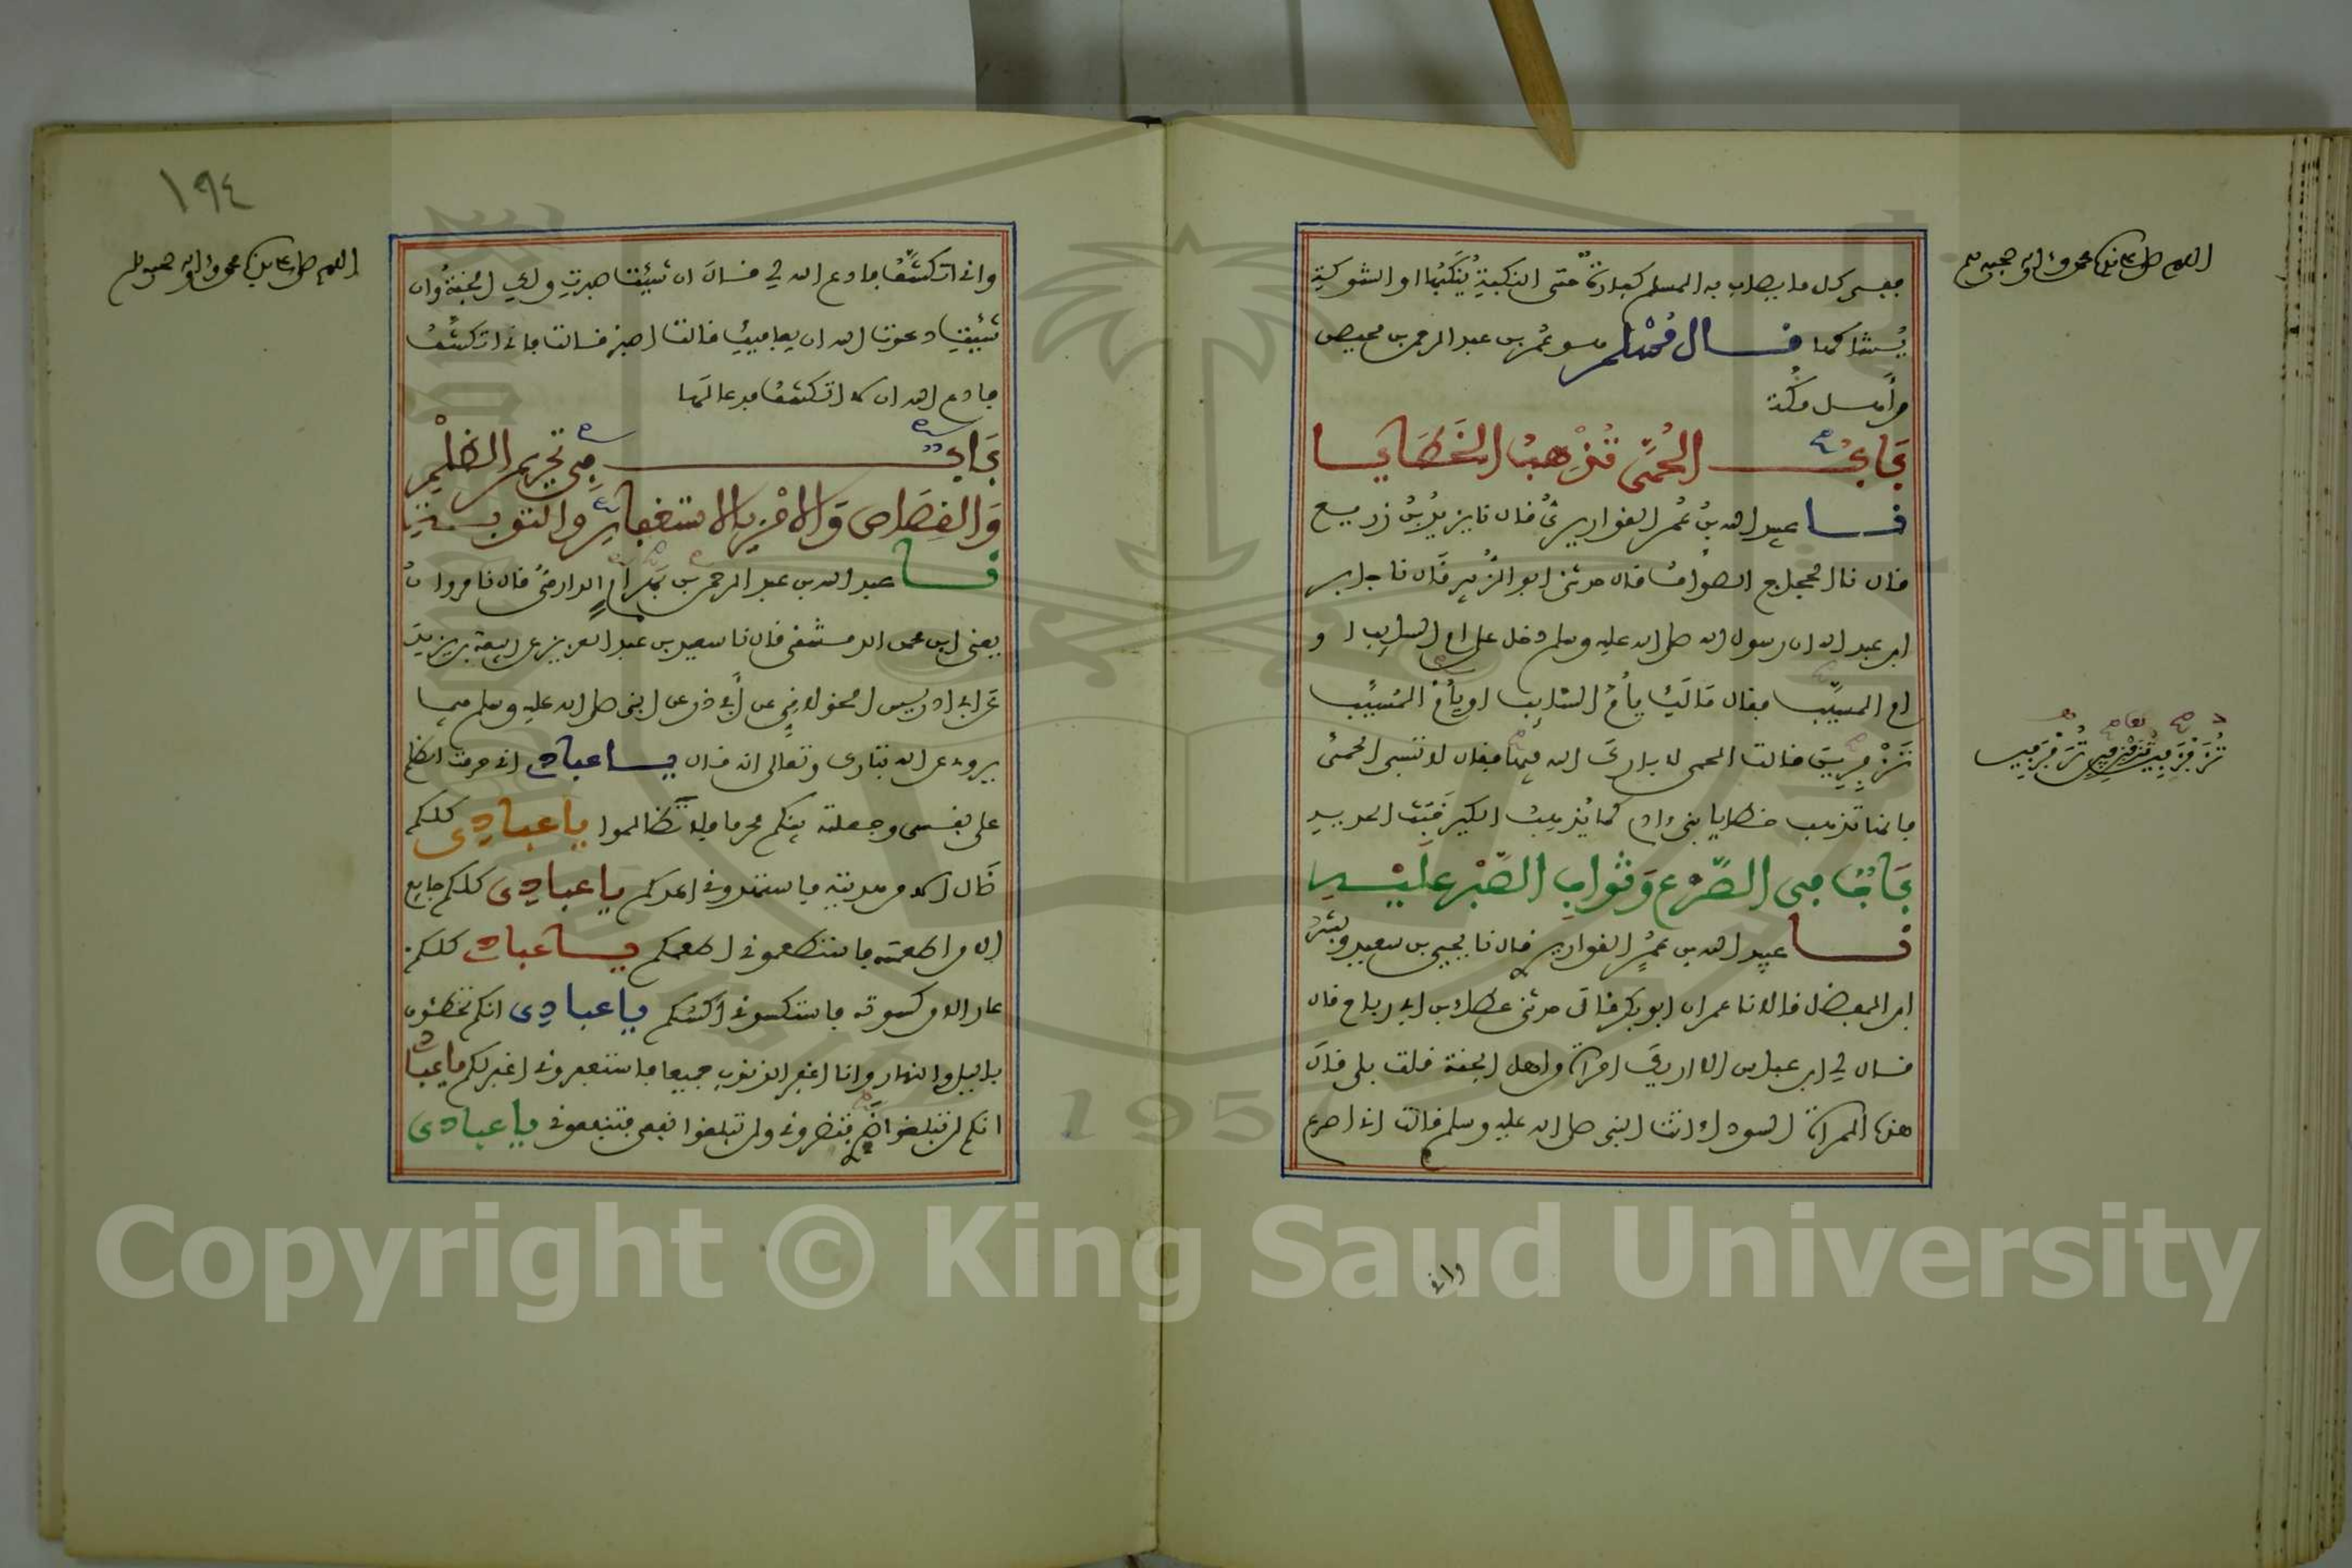 اللهم صل على سيدنا محمد وءاله وصحبه وسلم
ففى كل ما يصاب به المسلم كفارة حتى النكبةِ يُنْكَبُها او الشوكةِ
يُشاكها قال مُسْلم هو عُمر بن عبد الرحمن بن محيصن
من أهل مكة
بَابُ الحُمَّى تُذْهبُ الخَطَايا
نا عبيد الله بنُ عُمر القواريرىُّ قال نا يزيدُ بنُ زريع
قال نا الحجاج الصوافُ قال حدثنى ابو الزُّبير قال نا جابر
ابن عبد الله ان رسول الله صلى الله عليه وسلم دخل على ام السايب او
ام المسيَّب فقال مَالَكِ يأُمَّ السَّايب او يأُمَّ المُسَيَّب
تزفزفين قالت الحمى لا بارك الله فيها فقال لا تسبى الحمى
فانها تذهب خطايا بنى ءادم كما يُذهِبُ الكيرُ خَبَثَ الحديد
بَابٌ فى الصَّرْعِ وَثَوابِ الصَّبْرِ عَلَيْهِ
نا عبيد الله بن عُمر القواريرى قال نا يحيى بن سعيد وبشرُ
ابن المفضل قالا نا عمران ابو بكر قال حدثنى عطاء بن ابى رباح قال
قال لى ابن عباس الا اريك امراة من اهل الجنة قلت بلى قال
هذه المراة السوداء اتت النبى صلى الله عليه وسلم قالت انى اصرع
وانى
١٩٤
اللهم صل على سيدنا محمد وءاله وصحبه وسلم
وانى اتكشَّفُ فادع الله لى قال ان شيتِ صبرتِ ولكِ الجنةُ وان
شيتِ دعوت الله ان يعافيكِ قالت اصبر قالت فانى اتكشَّفُ
فادع الله ان لا اتكشَّفَ فدعا لَها
بَابُ فِى تحريم الظلْمِ
وَالقِصَاصِ وَالامْرِ بالاستغفارِ والتوبةِ
نا عبد الله بن عبد الرحمن بن بَهْرام الدارمىُّ قال نا مروانُ
يعنى ابن محمد الدمشقى قال نا سعيد بن عبد العزيز عن ربيعة بن يزيدَ
عَن ابى ادريس الخولانِىِّ عن أبى ذر عن النبى صلى الله عليه وسلم فيما
يروى عن الله تبارك وتعالى انه قال ياعبادى انى حرمت الظلم
على نفسى وجعلته بينكم محرما فلا تَظالموا ياعبادِى كلكم
ضَال الا من هديته فاستهدونى اهدكم ياعبادِى كلكم جايع
الا من اطعمته فاستطعمونى اطعمكم ياعبادى كلكم
عار الا من كسوته فاستكسونى اكسكم ياعبادِى انكم تخطئون
بالليل والنهار وانا اغفر الذنوب جميعا فاستغفرونى اغفر لكم ياعبادى
انكم لن تبلغوا ضرى فتضرونى ولن تبلغوا نفعى فتنفعونى ياعبادى